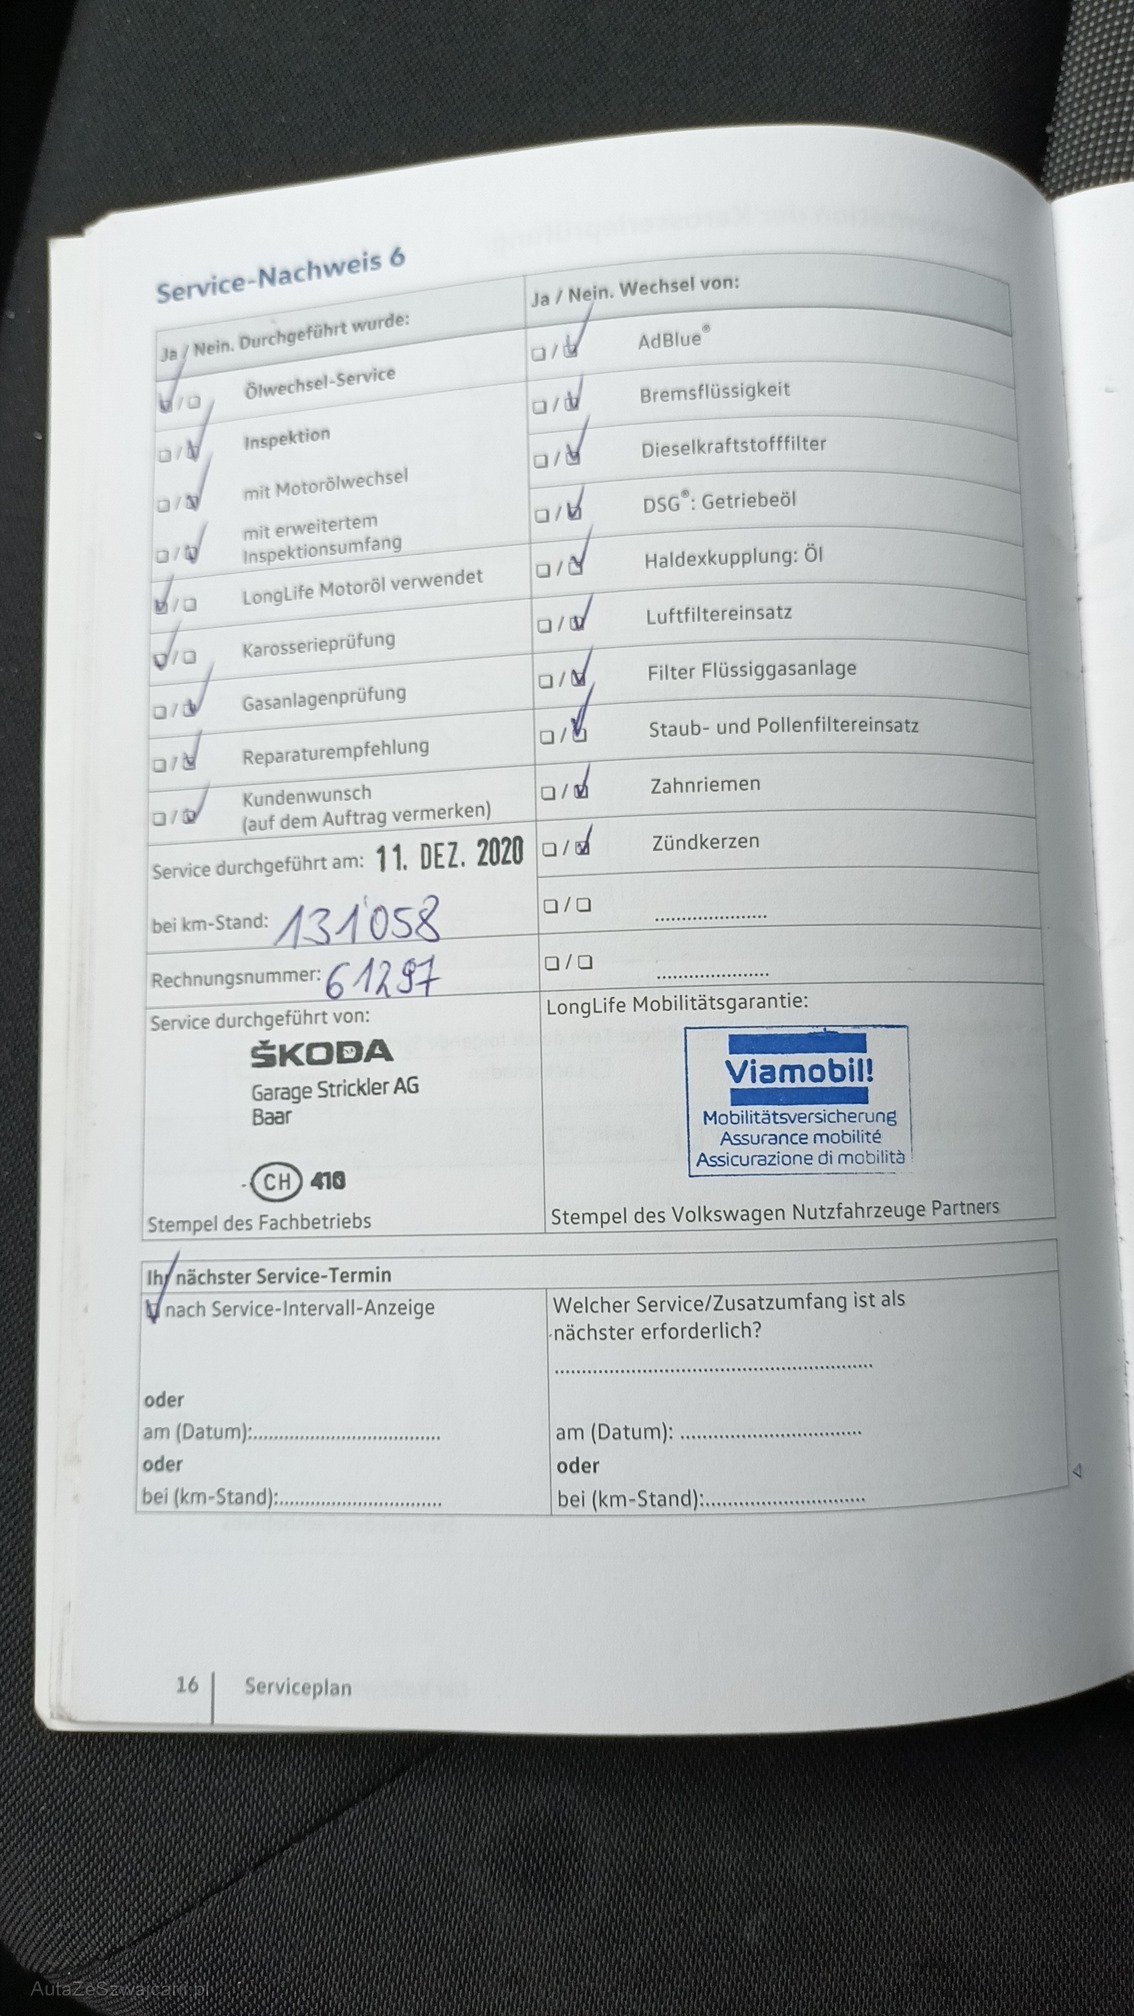 Service-Nachweis 6
Ja / Nein. Durchgeführt wurde:
Ölwechsel-Service
Inspektion
mit Motorölwechsel
mit erweitertem
Inspektionsumfang
LongLife Motoröl verwendet
Karosserieprüfung
Gasanlagenprüfung
Reparaturempfehlung
Kundenwunsch
(auf dem Auftrag vermerken)
Service durchgeführt am: 11. DEZ. 2020
bei km-Stand: 131'058
Rechnungsnummer: 61297
Service durchgeführt von:
ŠKODA
Garage Strickler AG
Baar
CH 410
Stempel des Fachbetriebs
Ja / Nein. Wechsel von:
AdBlue®
Bremsflüssigkeit
Dieselkraftstofffilter
DSG®: Getriebeöl
Haldexkupplung: Öl
Luftfiltereinsatz
Filter Flüssiggasanlage
Staub- und Pollenfiltereinsatz
Zahnriemen
Zündkerzen
LongLife Mobilitätsgarantie:
Viamobil!
Mobilitätsversicherung
Assurance mobilité
Assicurazione di mobilità
Stempel des Volkswagen Nutzfahrzeuge Partners
Ihr nächster Service-Termin
nach Service-Intervall-Anzeige
oder
am (Datum):
oder
bei (km-Stand):
Welcher Service/Zusatzumfang ist als
nächster erforderlich?
am (Datum):
oder
bei (km-Stand):
16 Serviceplan
AutaZeSzwajcarii.pl